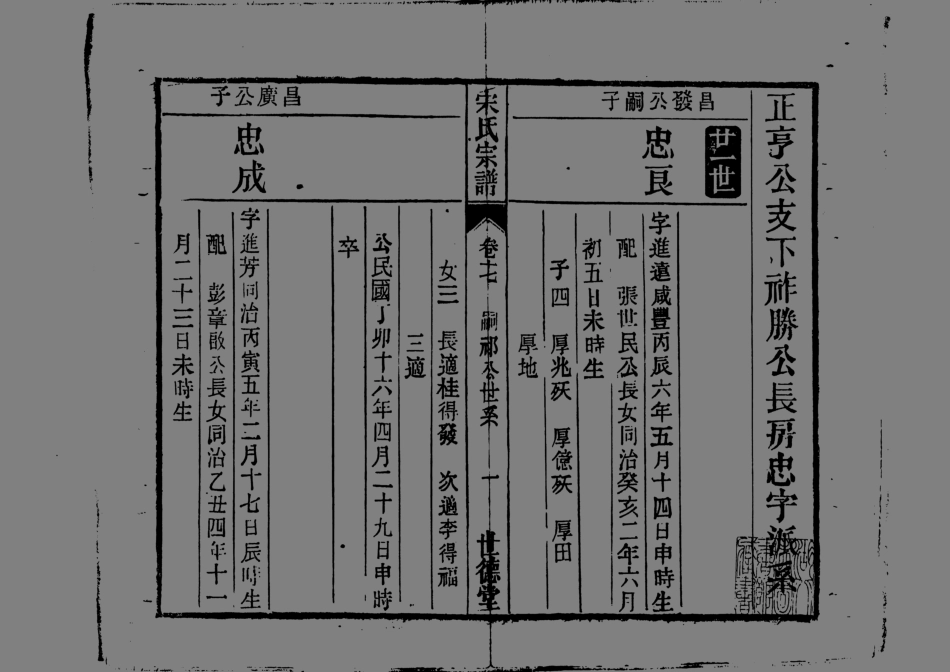 正亨公支下祚勝公長房忠字派系
廿一世
昌發公嗣子
忠良
字進遠咸豐丙辰六年五月十四日申時生
配 張世民公長女同治癸亥二年六月
初五日未時生
子四 厚兆殀 厚億殀 厚田
厚地
宋氏宗譜
卷十七 嗣祁公世系 一 世德堂
女三 長適桂得發 次適李得福
三適
公民國丁卯十六年四月二十九日申時
卒
昌廣公子
忠成
字進芳同治丙寅五年二月十七日辰時生
配 彭章啟公長女同治乙丑四年十一
月二十三日未時生